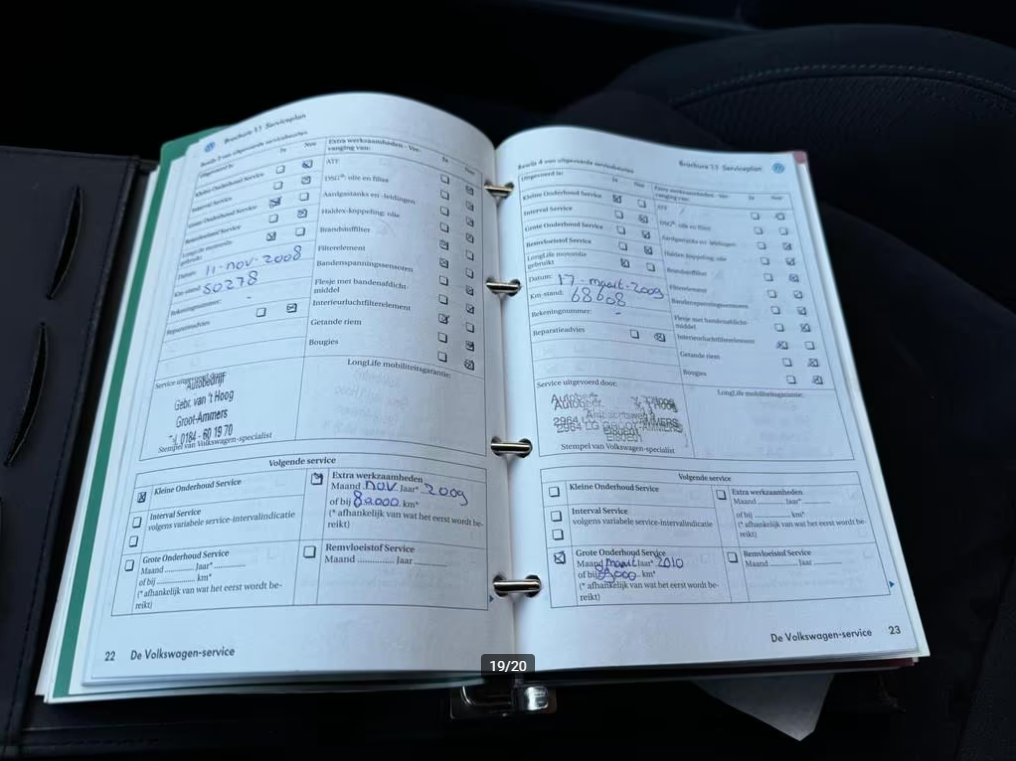 Brochure 1.1 Serviceplan
Bewijs 3 van uitgevoerde servicebeurten
Uitgevoerd is:
Ja
Nee
Kleine Onderhoud Service
Interval Service
Grote Onderhoud Service
Remvloeistof Service
LongLife motorolie
gebruikt
Datum: 11-nov-2008
Km-stand: 50278
Rekeningnummer: -
Reparatieadvies
Extra werkzaamheden - Ver-
vanging van:
Ja
Nee
ATF
DSG®: olie en filter
Aardgastanks en -leidingen
Haldex-koppeling: olie
Brandstoffilter
Filterelement
Bandenspanningssensoren
Flesje met bandenafdicht-
middel
Interieurluchtfilterelement
Getande riem
Bougies
Service uitgevoerd door:
Autobedrijf
Gebr. van 't Hoog
Groot-Ammers
Tel. 0184 - 60 19 70
Stempel van Volkswagen-specialist
LongLife mobiliteitsgarantie:
Volgende service
Kleine Onderhoud Service
Interval Service
volgens variabele service-intervalindicatie
Grote Onderhoud Service
Maand ............ Jaar* ............
of bij ............ km*
(* afhankelijk van wat het eerst wordt be-
reikt)
Extra werkzaamheden
Maand nov. Jaar* 2009
of bij 80.000 km*
(* afhankelijk van wat het eerst wordt be-
reikt)
Remvloeistof Service
Maand ............ Jaar ............
22 De Volkswagen-service
Brochure 1.1 Serviceplan
Bewijs 4 van uitgevoerde servicebeurten
Uitgevoerd is:
Ja
Nee
Kleine Onderhoud Service
Interval Service
Grote Onderhoud Service
Remvloeistof Service
LongLife motorolie
gebruikt
Datum: 17-maart-2009
Km-stand: 68608
Rekeningnummer: -
Reparatieadvies
Extra werkzaamheden - Ver-
vanging van:
Ja
Nee
ATF
DSG®: olie en filter
Aardgastanks en -leidingen
Haldex-koppeling: olie
Brandstoffilter
Filterelement
Bandenspanningssensoren
Flesje met bandenafdicht-
middel
Interieurluchtfilterelement
Getande riem
Bougies
Service uitgevoerd door:
2964 LG GROOT-AMMERS
Stempel van Volkswagen-specialist
LongLife mobiliteitsgarantie:
Volgende service
Kleine Onderhoud Service
Interval Service
volgens variabele service-intervalindicatie
Grote Onderhoud Service
Maand maart Jaar* 2010
of bij km*
(* afhankelijk van wat het eerst wordt be-
reikt)
Extra werkzaamheden
Maand ............ Jaar* ............
of bij ............ km*
(* afhankelijk van wat het eerst wordt be-
reikt)
Remvloeistof Service
Maand ............ Jaar ............
De Volkswagen-service 23
19/20